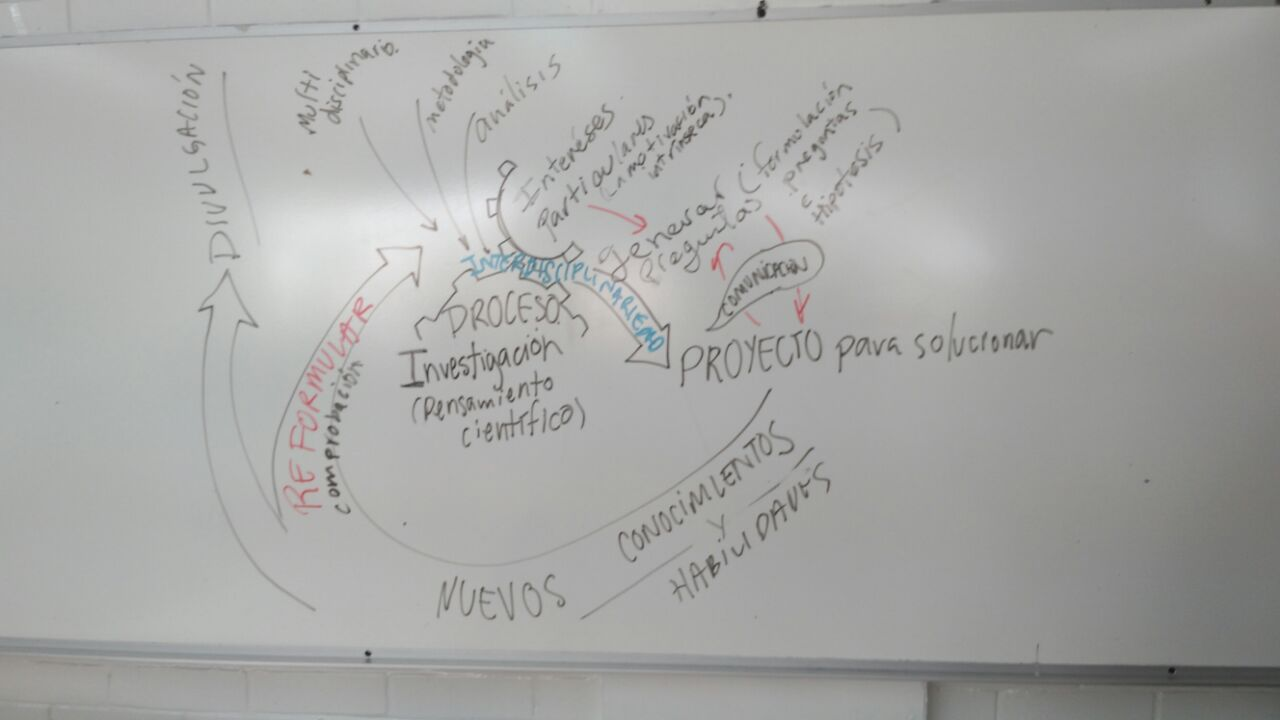 DIVULGACIÓN
Multi
disciplinario.
metodología
análisis
Interéses
particulares
(n motivación
intrínseca).
generar
preguntas
(formulación
preguntas
e
Hipotesis)
INTERDISCIPLINARIEDAD
COMUNICACIÓN
PROCESO
Investigación
(Pensamiento
científico)
PROYECTO para solucionar
REFORMULAR
comprobación
NUEVOS
CONOCIMIENTOS
Y
HABILIDADES